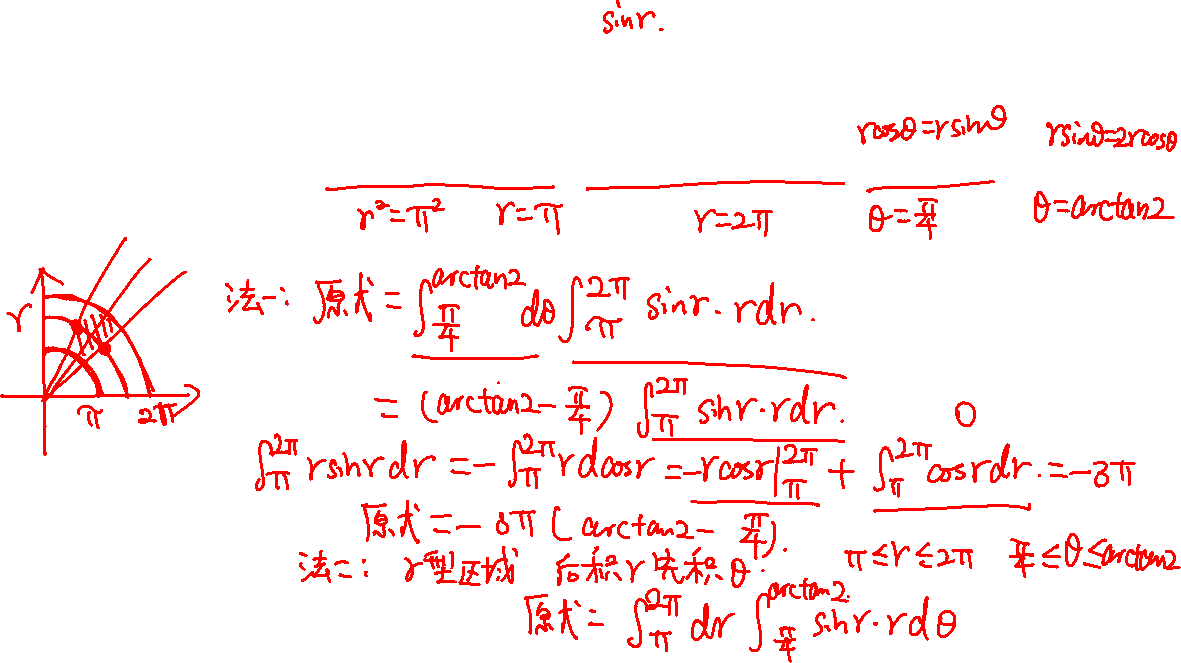 sinr.
rcosθ=rsinθ rsinθ=2rcosθ
r²=π² r=π r=2π θ=π/4 θ=arctan2
r π 2π
法一: 原式=∫_{π/4}^{arctan2}dθ∫_π^{2π} sinr·rdr.
=(arctan2-π/4)∫_π^{2π} sinr·rdr. 0
∫_π^{2π} rsinrdr=-∫_π^{2π} rdcosr=-rcosr|_π^{2π}+∫_π^{2π}cosrdr.=-3π
原式=-3π(arctan2-π/4).
法二: r型区域 后积r先积θ. π≤r≤2π π/4≤θ≤arctan2
原式=∫_π^{2π}dr∫_{π/4}^{arctan2.}sinr·rdθ